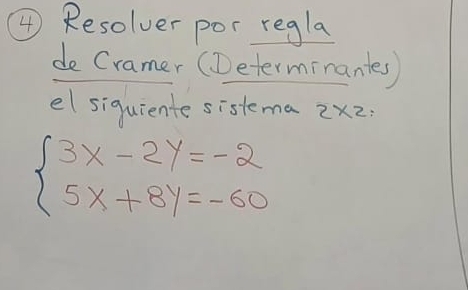 4 Resolver por regla
de Cramer (Determinantes)
el siguiente sistema 2x2:
3x - 2y = -2
5x + 8y = -60